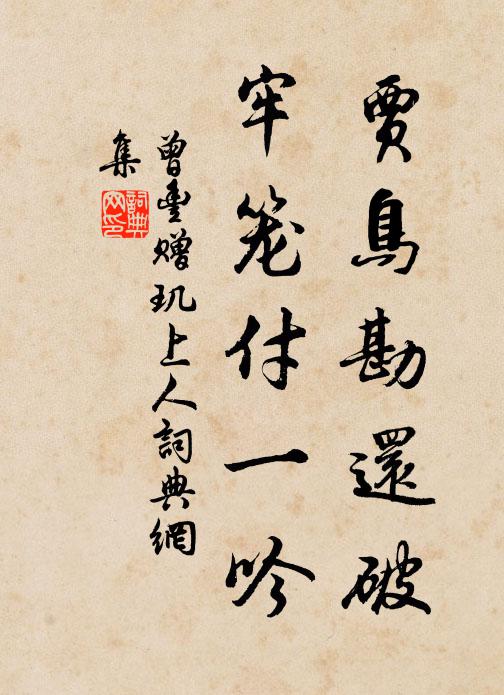 賈島勘還破
牢笼付一吟
曾豊贈玑上人詞典網
集
詞典
网印